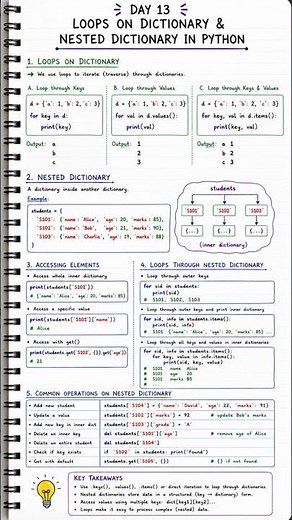 DAY 13
LOOPS ON DICTIONARY &
NESTED DICTIONARY IN PYTHON
1. LOOPS ON DICTIONARY
→ We use loops to iterate (traverse) through dictionaries.
A. Loop through Keys
d = {'a': 1, 'b': 2, 'c': 3}
for key in d:
print(key)
Output: a
b
c
B. Loop through Values
d = {'a': 1, 'b': 2, 'c': 3}
for val in d.values():
print(val)
Output: 1
2
3
C. Loop through Keys & Values
d = {'a': 1, 'b': 2, 'c': 3}
for key, val in d.items():
print(key, val)
Output: a 1
b 2
c 3
2. NESTED DICTIONARY
A dictionary inside another dictionary.
Example:
students = {
'S101': {'name': 'Alice', 'age': 20, 'marks': 85},
'S102': {'name': 'Bob', 'age': 21, 'marks': 90},
'S103': {'name': 'Charlie', 'age': 19, 'marks': 88}
}
students
'S101' 'S102' 'S103'
{...} {...} {...}
(inner dictionary)
3. ACCESSING ELEMENTS
• Access whole inner dictionary
print(students['S101'])
# {'name': 'Alice', 'age': 20, 'marks': 85}
• Access a specific value
print(students['S101']['name'])
# Alice
• Access with get()
print(students.get('S102', {}).get('age'))
# 21
4. LOOPS THROUGH NESTED DICTIONARY
• Loop through outer keys
for sid in students:
print(sid)
# S101, S102, S103
• Loop through outer keys and print inner dictionary
for sid, info in students.items():
print(sid, info)
# S101 {'name': 'Alice', 'age': 20, 'marks': 85}
• Loop through all keys and values in inner dictionaries
for sid, info in students.items():
for key, value in info.items():
print(sid, key, value)
# S101 name Alice
# S101 age 20
# S101 marks 85
# ...
5. COMMON OPERATIONS ON NESTED DICTIONARY
• Add new student students['S104'] = {'name': 'David', 'age': 22, 'marks': 91}
• Update a value students['S102']['marks'] = 92 # update Bob's marks
• Add new key in inner dict students['S103']['grade'] = 'A'
• Delete an inner key del students['S101']['age'] # remove age of Alice
• Delete an entire student del students['S104']
• Check if key exists if 'S102' in students: print('Found')
• Get with default students.get('S105', {}) # {} if not found
KEY TAKEAWAYS
• Use .keys(), .values(), .items() or direct iteration to loop through dictionaries.
• Nested dictionaries store data in a structured (key → dictionary) form.
• Access values using multiple keys: dict[key1][key2]...
• Loops make it easy to process complex (nested) data.